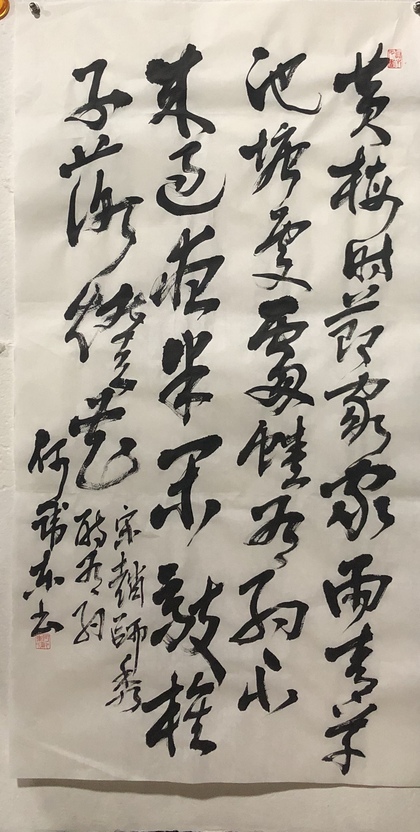 黄梅时节家家雨青草
池塘處處蛙有约不
来过夜半闲敲棋
子落灯花
宋趙師秀
诗有约
何东书